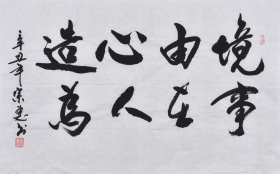 境由心造
事在人為
辛丑年宋